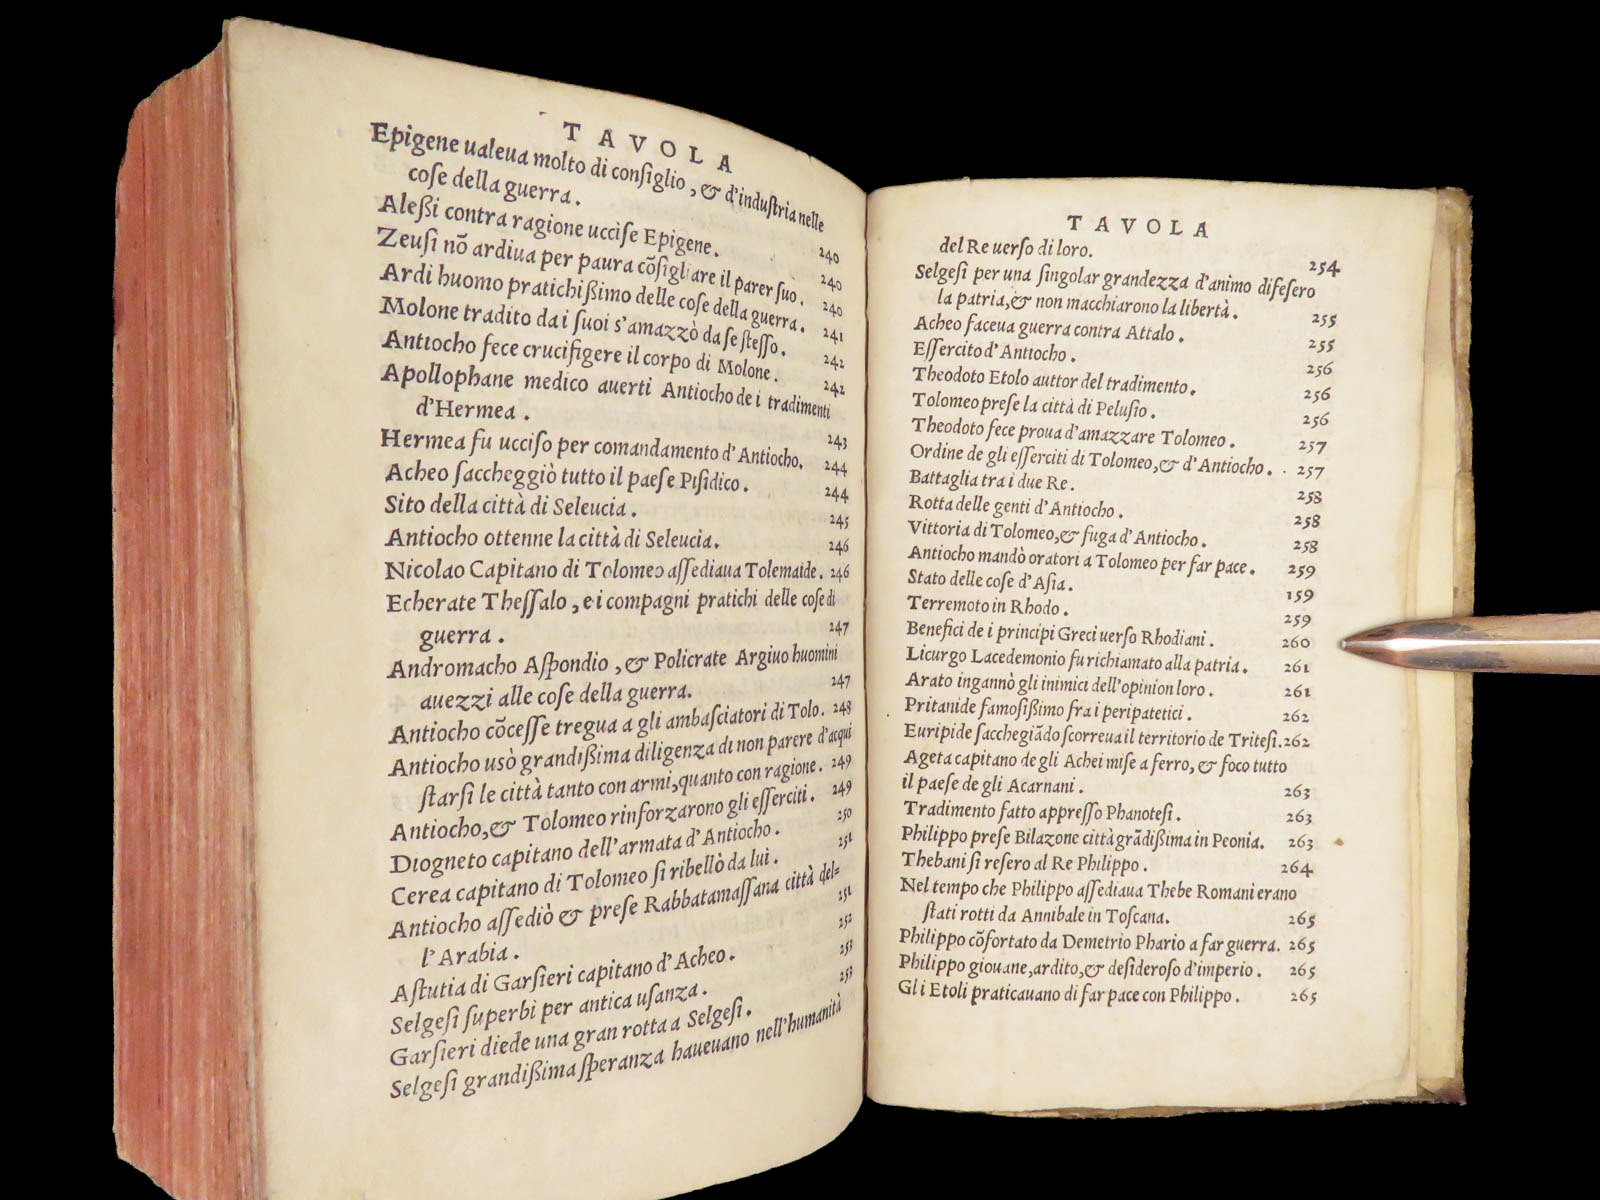 TAVOLA
Epigene ualeua molto di conſiglio, & d'induſtria nelle
coſe della guerra. 240
Aleßi contra ragione ucciſe Epigene. 240
Zeuſi nõ ardiua per paura cõſigliare il parer ſuo. 240
Ardi huomo pratichißimo delle coſe della guerra. 241
Molone tradito da i ſuoi s'amazzò da ſe ſteſſo. 242
Antiocho fece crucifigere il corpo di Molone. 242
Apollophane medico auerti Antiocho de i tradimenti
d'Hermea. 243
Hermea fu ucciſo per comandamento d'Antiocho. 244
Acheo ſaccheggiò tutto il paeſe Piſidico. 244
Sito della città di Seleucia. 245
Antiocho ottenne la città di Seleucia. 246
Nicolao Capitano di Tolomeo aſſediaua Tolemaide. 246
Echerate Theſſalo, e i compagni pratichi delle coſe di
guerra. 247
Andromacho Aſpondio, & Policrate Argiuo huomini
auezzi alle coſe della guerra. 247
Antiocho cõceſſe tregua a gli ambaſciatori di Tolo. 248
Antiocho usò grandißima diligenza di non parere d'acqui
ſtarſi le città tanto con armi, quanto con ragione. 249
Antiocho, & Tolomeo rinforzarono gli eſſerciti. 249
Diogneto capitano dell'armata d'Antiocho. 250
Cerea capitano di Tolomeo ſi ribellò da lui. 251
Antiocho aſſediò & preſe Rabbatamaſſana città del-
l'Arabia. 251
Aſtutia di Garſieri capitano d'Acheo. 252
Selgeſi ſuperbi per antica uſanza. 253
Garſieri diede una gran rotta a Selgeſi. 253
Selgeſi grandißima ſperanza haueuano nell'humanità
TAVOLA
del Re uerſo di loro. 254
Selgeſi per una ſingolar grandezza d'animo difeſero
la patria, & non macchiarono la libertà. 255
Acheo faceua guerra contra Attalo. 255
Eſſercito d'Antiocho. 256
Theodoto Etolo auttor del tradimento. 256
Tolomeo preſe la città di Peluſio. 256
Theodoto fece proua d'amazzare Tolomeo. 257
Ordine de gli eſſerciti di Tolomeo, & d'Antiocho. 257
Battaglia tra i due Re. 258
Rotta delle genti d'Antiocho. 258
Vittoria di Tolomeo, & fuga d'Antiocho. 258
Antiocho mandò oratori a Tolomeo per far pace. 259
Stato delle coſe d'Aſia. 159
Terremoto in Rhodo. 259
Benefici de i principi Greci uerſo Rhodiani. 260
Licurgo Lacedemonio fu richiamato alla patria. 261
Arato ingannò gli inimici dell'opinion loro. 261
Pritanide famoſißimo fra i peripatetici. 262
Euripide ſacchegiãdo ſcorreua il territorio de Triteſi. 262
Ageta capitano de gli Achei miſe a ferro, & foco tutto
il paeſe de gli Acarnani. 263
Tradimento fatto appreſſo Phanoteſi. 263
Philippo preſe Bilazone città grãdißima in Peonia. 263
Thebani ſi reſero al Re Philippo. 264
Nel tempo che Philippo aſſediaua Thebe Romani erano
ſtati rotti da Annibale in Toſcana. 265
Philippo cõfortato da Demetrio Phario a far guerra. 265
Philippo giouane, ardito, & deſideroſo d'imperio. 265
Gli Etoli praticauano di far pace con Philippo. 265